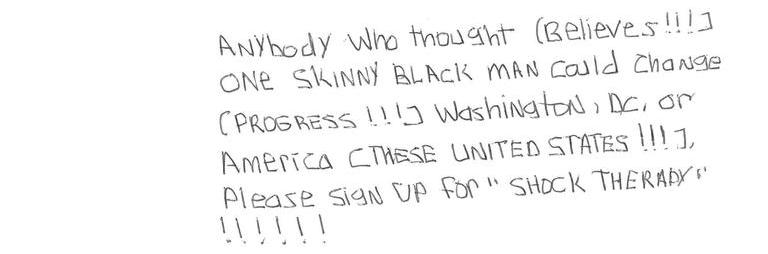 ANYbody Who thought (Believes!!!]
ONE SKINNY BLACK MAN Could Change
(PROGRESS !!!] Washington, DC, or
America [THESE UNITED STATES !!!],
Please SIGN UP for "SHOCK THERADY"
!!!!!!